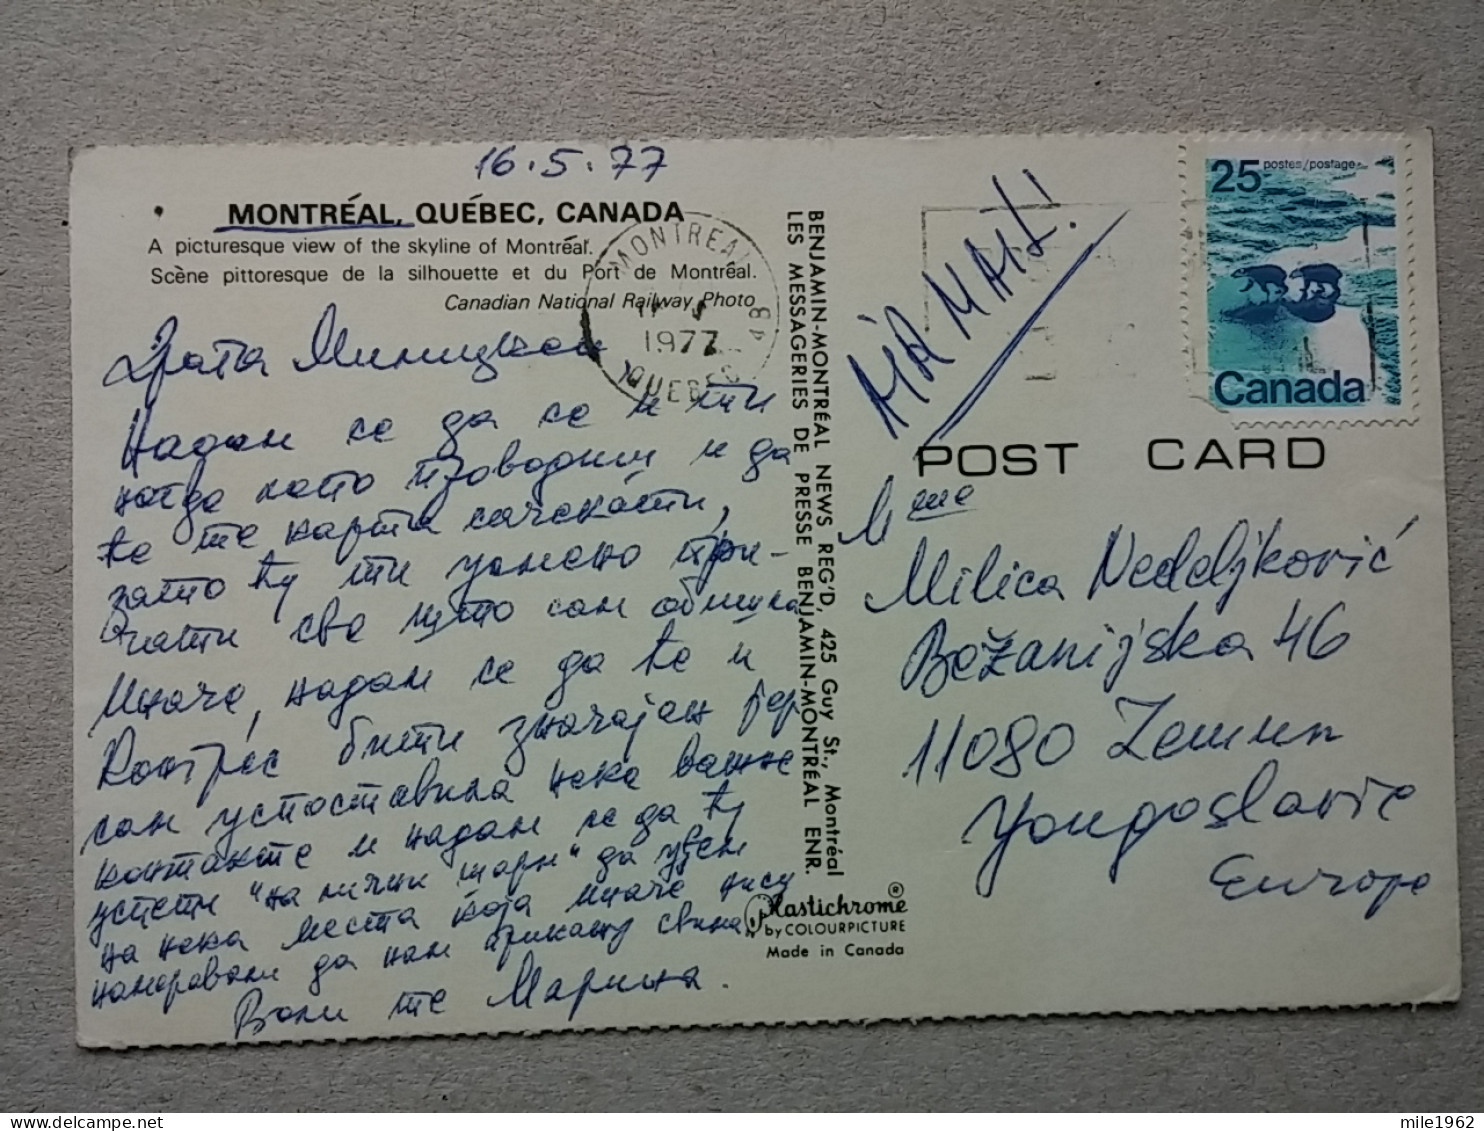 16.5.77
MONTRÉAL, QUÉBEC, CANADA
A picturesque view of the skyline of Montréal.
Scène pittoresque de la silhouette et du Port de Montréal.
Canadian National Railway Photo
MONTREAL
1977
QUEBEC
Драга Милицхен
Надам се да се и ти
негде лепо проводиш и да
ће те карта сачекати,
зато ћу ти усмено при-
чати све што сам обишла
Иначе, надам се да ће и
Конгрес бити значајан јер
сам успоставила неке важне
контакте и надам се да ћу
успети "на лични шарм" да уђем
на нека места која иначе нису
намеравали да нам прикажу свима.
Воли те Марина.
BENJAMIN-MONTRÉAL NEWS REG'D, 425 Guy St., Montréal
LES MESSAGERIES DE PRESSE BENJAMIN-MONTRÉAL ENR.
Plastichrome ®
by COLOURPICTURE
Made in Canada
AIR MAIL!
25 postes/postage
Canada
POST CARD
Mme
Milica Nedeljković
Božanijska 46
11080 Zemun
Yougoslavie
Europe
mile1962